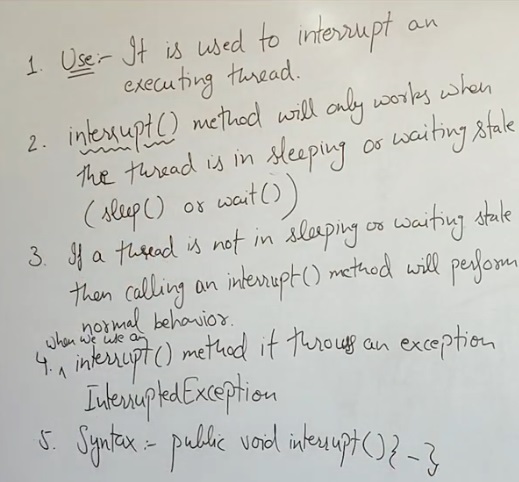 1. Use:- It is used to interrupt an
executing thread.
2. interrupt() method will only works when
the thread is in sleeping or waiting state
(sleep() or wait())
3. If a thread is not in sleeping or waiting state
then calling an interrupt() method will perform
normal behavior.
when we use an
4. ^ interrupt() method it throws an exception
InterruptedException
5. Syntax:- public void interrupt(){-}